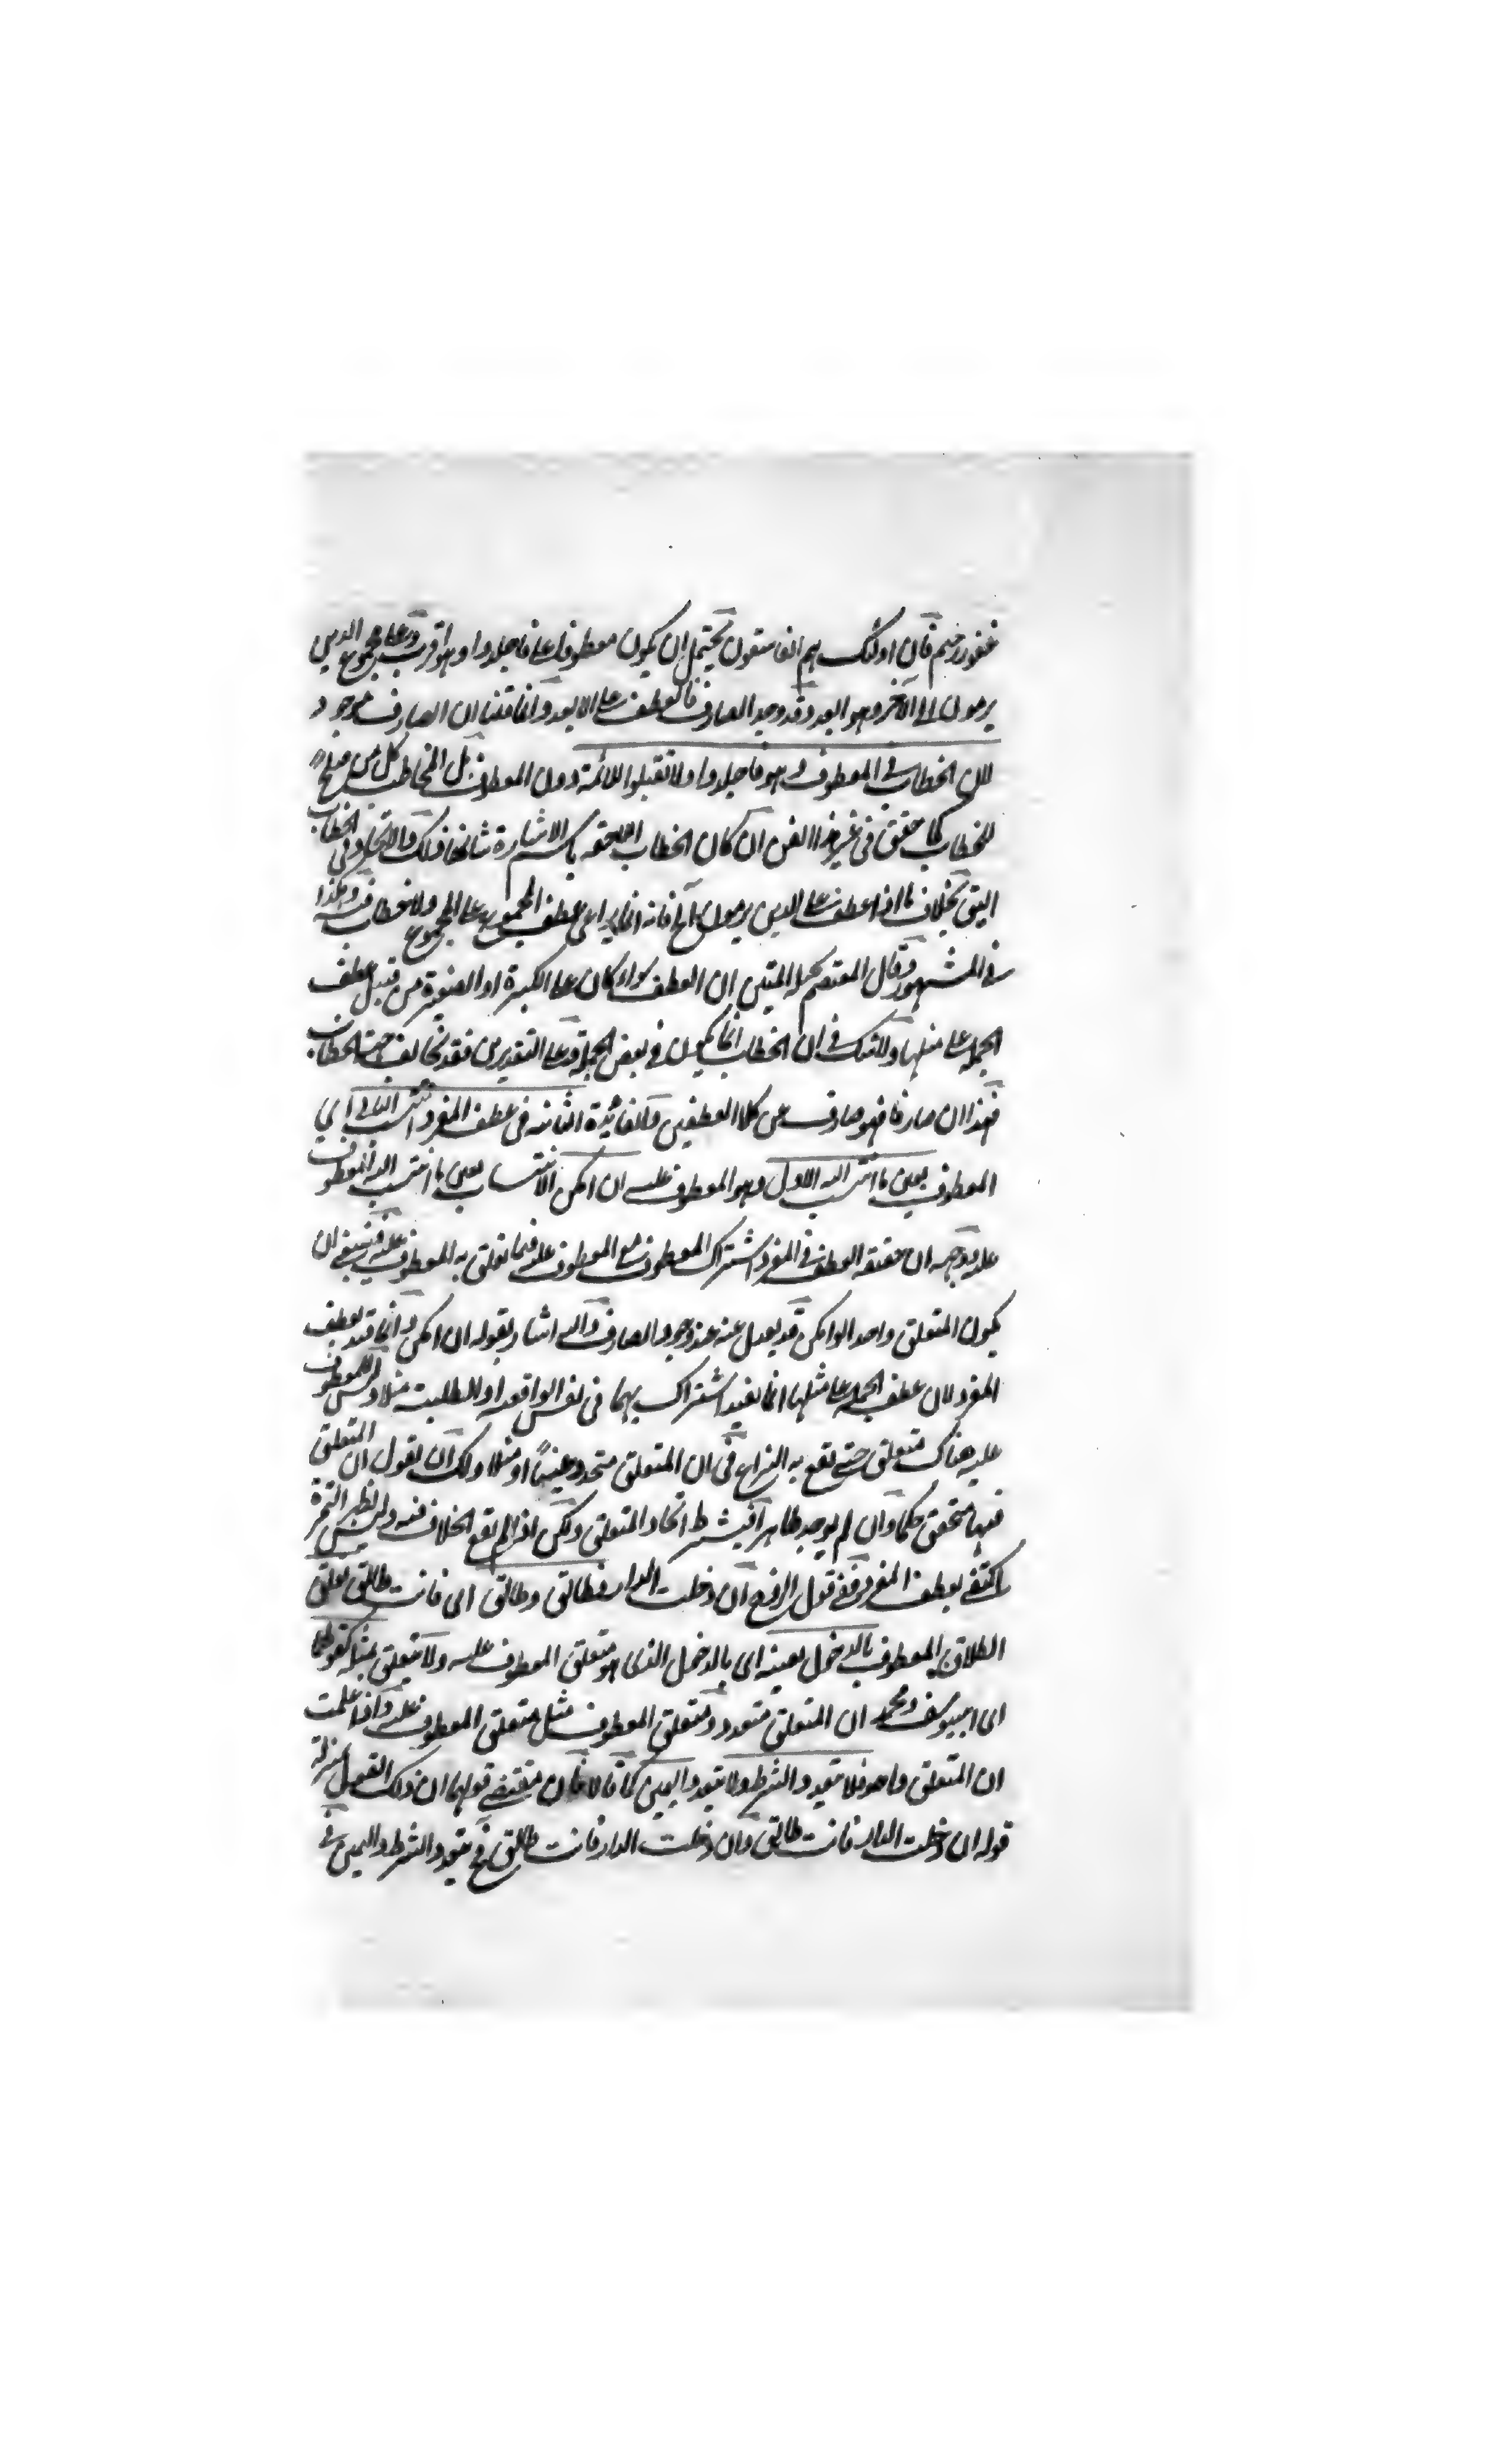 غفور رحيم فان اولئك هم الفاسقون يحتمل ان يكون معطوفا على فاجلدوا وهو اقرب وعلى مجموع الذين
يرمون الى الآخر وهو ابعد وقد وجد الصارف فالعطف على الابعد وانما قلنا ان الصارف موجود
لان الخطاب في المعطوف وهو فاجلدوا ولا تقبلوا للائمة دون المعطوف بل المخاطب كل من صلح
للخطاب كما حقق في غير هذا الفن ان كان الخطاب اللاحقة باسم الاشارة شانها ذلك والاتحاد في الخطاب
اليق بخلاف ما اذا عطف على الذين يرمون الخ فانه انما يراعى عطف المجموع على المجموع ولا خطاب فيه وهكذا
في المشهور وقال المعتصم بحبل الله المتين ان العطف سواء كان على الكبيرة او الصغيرة من قبيل عطف
الجملة على مثلها ولا شك في ان الخطاب انما يكون في بعض الجملة وعلى التقديرين فقد تخالف جهة الخطاب
فهذا ان صارفا فهو صارف عن كلا العطفين والفائدة الثانية في عطف المفرد انتسب الثاني اي
المعطوف بعين ما انتسب اليه الاول وهو المعطوف عليه ان امكن الانتساب بعين ما انتسب اليه المعطوف
عليه وجهه ان حقيقة العطف في المفرد اشتراك المعطوف مع المعطوف عليه فيما تعلق به المعطوف عليه فينبغي ان
يكون المتعلق واحدا لو امكن وقد يعدل عنه عند وجود الصارف واليه اشار بقوله ان امكن وانما قيد بعطف
المفرد لان عطف الجملة على مثلها انما يفيد اشتراكهما في نفس الواقعة او الطلبية مثلا وليس للمعطوف
عليه هناك متعلق حتى يقع به النزاع في ان المتعلق متحد عينا او مثلا ولك ان تقول ان المتعلق
فيها متحقق حكما وان لم يوجد ظاهرا فيشترط اتحاد المتعلق ولكن لما لم يقع الخلاف فيه ولم يظهر الثمرة
اكتفى بعطف المفرد ففي قول الزوج ان دخلت الدار فطالق وطالق اي فانت طالق تعلق
الطلاق المعطوف بالدخول بعينه اي بالدخول الذي هو متعلق المعطوف عليه ولا يتعلق بمثله كقولهما
اي ابي يوسف ومحمد ان المتعلق متعدد ومتعلق المعطوف مثل متعلق المعطوف عليه واذا علمت
ان المتعلق واحد فلا يتعدد الشرط ولا يتعدد اليمين كما قالا فان مقتضى قولهما ان ذلك القول بمنزلة
قوله ان دخلت الدار فانت طالق وان دخلت الدار فانت طالق فح يتعدد الشرط واليمين في